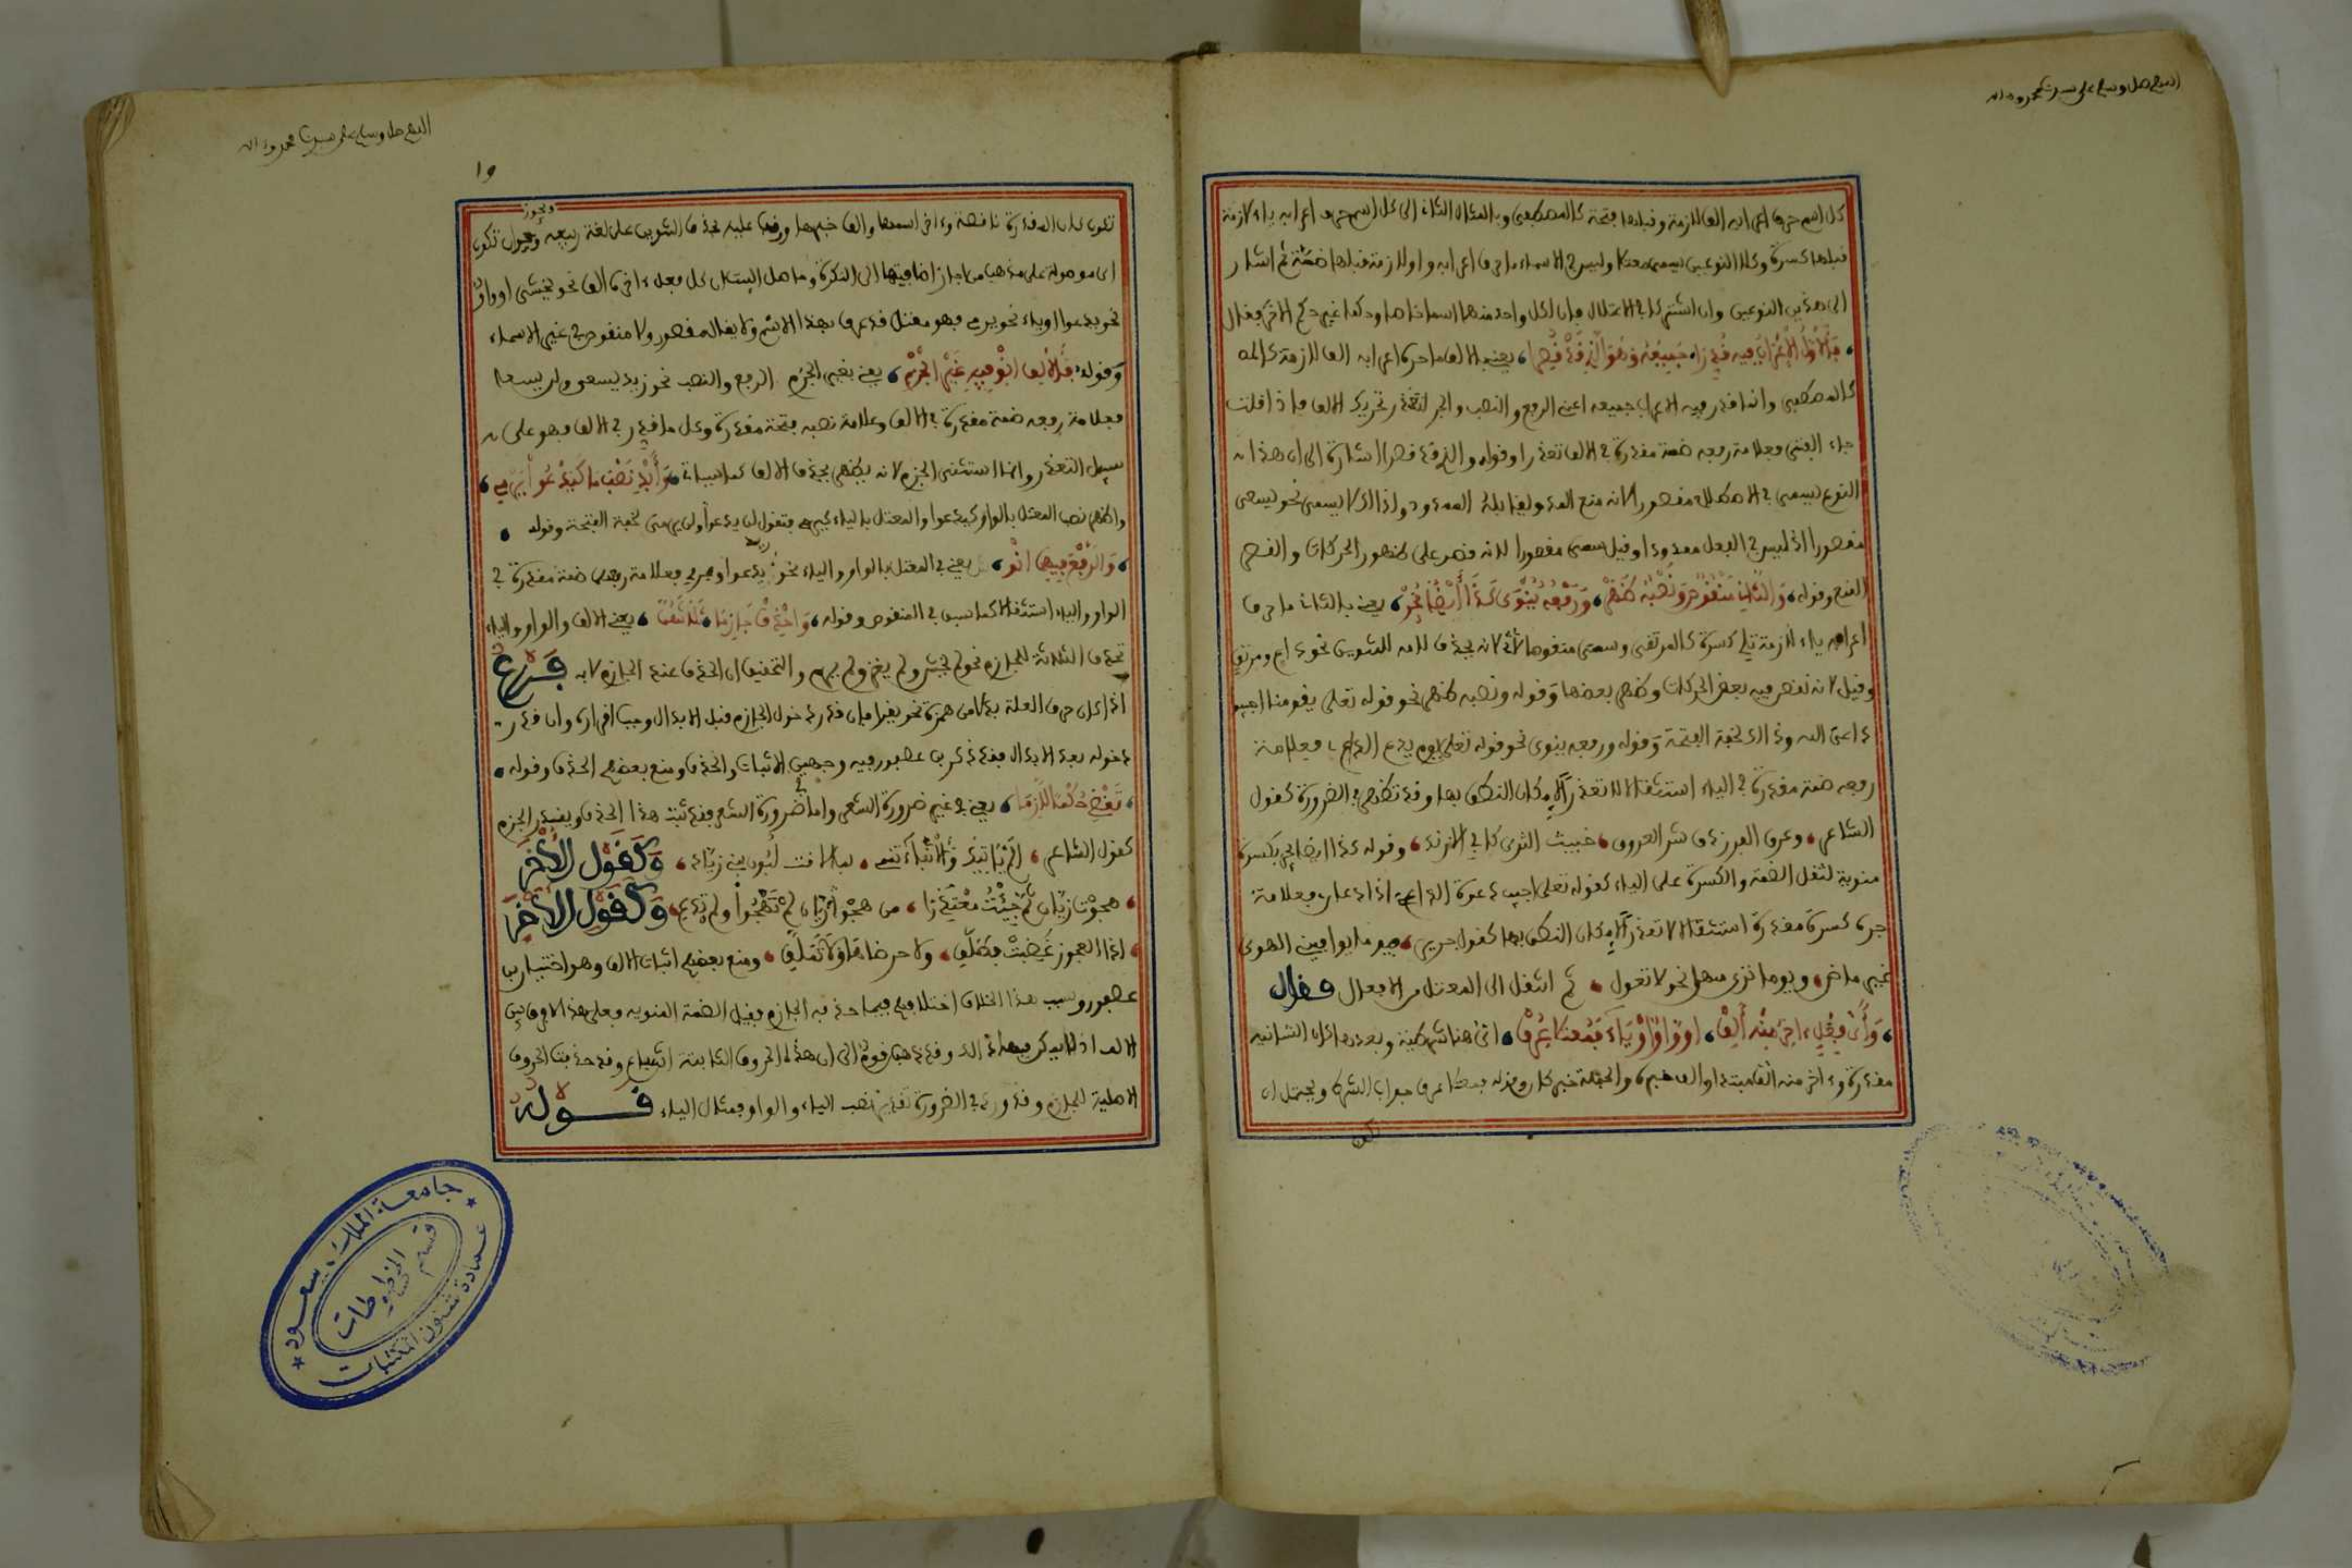 اللهم صل وسلم على سيدنا محمد وءاله
كل اسم حرف اعرابه الف لازمة وقبلها فتحة كالمصطفى وبالمثال الثانى الى كل اسم حرف اعرابه ياء لازمة
قبلها كسرة وكلا النوعين يسمى معتلا وليس فى الاسماء ما حرف اعرابه واو لازمة قبلها ضمة ثم اشار
الى هذين النوعين وان اشتركا فى الاعتلال فان لكل واحد منهما اسما خاصا وحكما غير حكم الاخر فقال
فالاول الاعراب فيه قدرا جميعه وهو الذى قد قصرا يعنى بالاول ما حرف اعرابه الف لازمة
كالمصطفى وانما قدر فيه الاعراب جميعه اعنى الرفع والنصب والجر لتعذر تحريك الالف فاذا قلت
جاء الفتى فعلامة رفعه ضمة مقدرة فى الالف تعذرا وقوله والذى قد قصرا اشارة الى ان هذا
النوع يسمى فى الاصطلاح مقصورا لانه منع المد ويقابله الممدود ولذلك لا يسمى نحو يسعى
مقصورا اذ ليس فى الفعل ممدودا وقيل سمى مقصورا لانه قصر على ظهور الحركات والقصر
المنع وقوله والثان منقوص ونصبه ظهر ورفعه ينوى كذا ايضا يجر يعنى بالثانى ما حرف
اعرابه ياء لازمة تلى كسرة كالمرتقى وسمى منقوصا لانه يحذف لامه للتنوين نحو داع ومرتق
وقيل لانه نقص فيه بعض الحركات وظهر بعضها وقوله ونصبه ظهر نحو قوله تعلى يقومنا اجيبوا
داعى الله وذلك لخفة الفتحة وقوله ورفعه ينوى نحو قوله تعلى يوم يدع الداع فعلامة
رفعه ضمة مقدرة فى الياء استثقالا لا تعذرا لامكان النطق بها وقد تظهر فى الضرورة كقول
الشاعر وعرق الفرزدق شر العروق خبيث الثرى كابى الازند وقوله كذا ايضا يجر بكسرة
منوية لثقل الضمة والكسرة على الياء كقوله تعلى اجيب دعوة الداع اذا دعان فعلامة
جره كسرة مقدرة استثقالا لا تعذرا لامكان النطق بها كقول جرير فيوما يوافين الهوى
غير ماضى ويوما ترى منهن غولا تغول ثم انتقل الى المعتل من الافعال فقال
واى فعل ءاخر منه الف او واو او ياء فمعتلا عرف اى هنا شرطية وبعدها كان الشانية
مقدرة وءاخر منه الف مبتدا والف خبره والجملة خبر كان وقوله فمعتلا عرف جواب الشرط ويحتمل ان
اللهم صل وسلم على سيدنا محمد وءاله
تكون كان المقدرة ناقصة وءاخر اسمها والف خبرها ووقف عليه بحذف التنوين على لغة ربيعة ويجوز ان تكون
اى موصولة على مذهب من اجاز اضافتها الى النكرة وشامل البيت ان كل فعل ءاخره الف نحو يخشى او واو
نحو يدعوا او ياء نحو يرمى فهو معتل قد عرف بهذا الاسم ولا يقال مقصور ولا منقوص فى غير الاسماء
وقوله فالالف انو فيه غير الجزم يعنى بغير الجزم الرفع والنصب نحو زيد يسعى ولن يسعى
فعلامة رفعه ضمة مقدرة فى الالف وعلامة نصبه فتحة مقدرة وكل ما قدر فى الالف فهو على
سبيل التعذر وانما استثنى الجزم لانه يظهر بحذف الالف كما سياتى وابد نصب ما كيدعوا يرمى
واظهر نصب المعتل بالواو كيدعوا والمعتل بالياء كيرمى فتقول لن يدعوا ولن يرمى لخفة الفتحة وقوله
والرفع فيهما انو يعنى فى المعتل بالواو والياء نحو يدعوا ويرمى فعلامة رفعهما ضمة مقدرة فى
الواو والياء استثقالا كما سبق فى المنقوص وقوله واحذف جازما ثلاثهن يعنى الالف والواو والياء
تحذف الثلاثة للجازم نحو لم يخش ولم يغز ولم يرم والتحقيق ان الحذف عند الجازم لا به فرع
اذا كان حرف العلة بدلا من همزة نحو يقرا فان قدر دخول الجازم قبل الابدال وجب اقراره وان قدر
دخوله بعد الابدال فقد ذكر ابن عصفور فيه وجهين الاثبات والحذف ومنع بعضهم الحذف وقوله
تقض حكما لازما يعنى فى غير ضرورة الشعر واما ضرورة الشعر فقد ثبت هذا الحذف ويقدر الجزم
كقول الشاعر الم ياتيك والانباء تنمى بما لاقت لبون بنى زياد وكقول الاخر
هجوت زبان ثم جئت معتذرا من هجو زبان لم تهجوا ولم تدع وكقول الاخر
اذا العجوز غضبت فطلق ولا ترضاها ولا تملق ومنع بعضهم اثبات الالف وهو اختيار ابن
عصفور وسبب هذا الخلاف اختلافهم فيما حذفه الجازم فقيل الضمة المنوية فعلى هذا لا فرق بين
الالف اذ لم يذكر فيها ذلك وقد ذهب قوم الى ان هذه الحروف الثابتة اشباع وقد حذفت الحروف
الاصلية للجازم وقد ورد فى الضرورة تقدير نصب الياء والواو فمثال الياء قوله
جامعة الملك سعود
عمادة شئون المكتبات
قسم المخطوطات